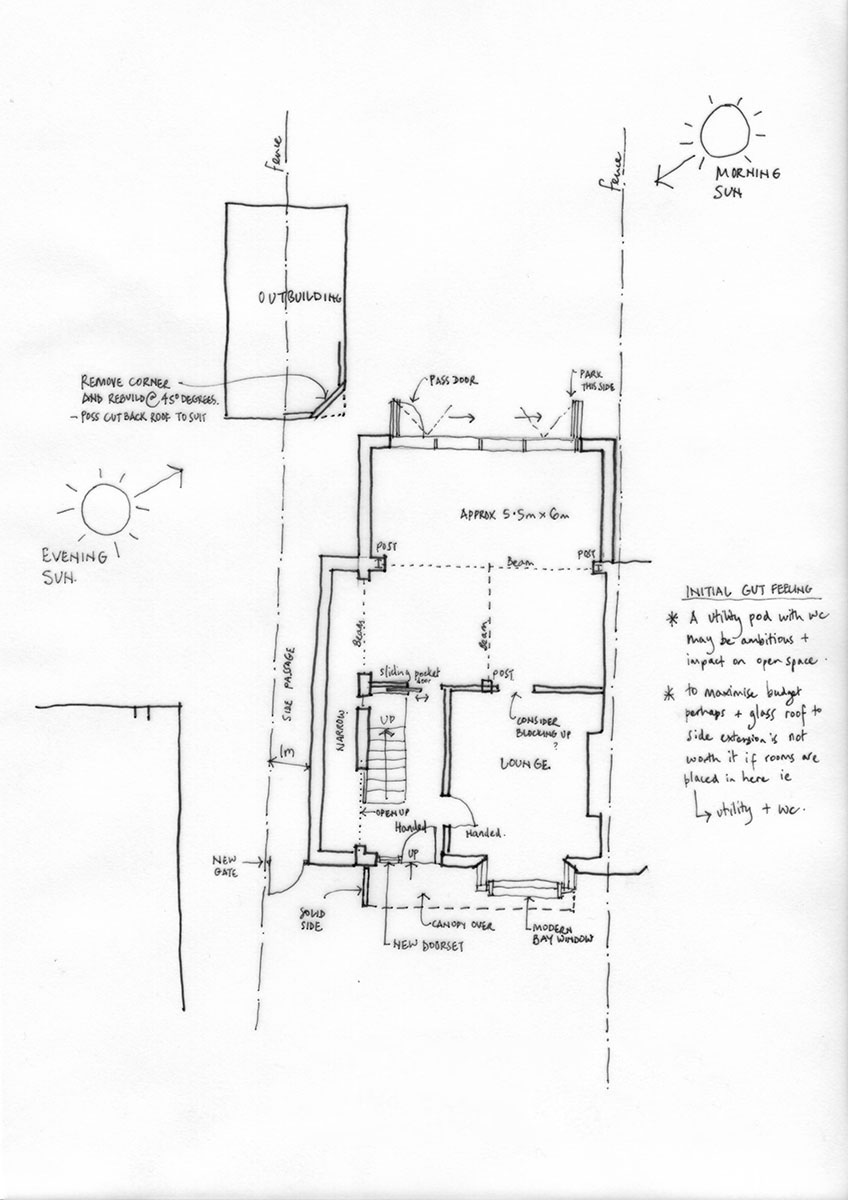 fence
fence
MORNING
SUN
OUTBUILDING
REMOVE CORNER
AND REBUILD @ 45° DEGREES.
- POSS CUT BACK ROOF TO SUIT
PASS DOOR
PARK
THIS SIDE
EVENING
SUN.
APPROX 5.5m x 6m
POST
Beam
POST
Beam
Beam
SIDE PASSAGE
1m
NARROW
sliding pocket
door
POST
UP
CONSIDER
BLOCKING UP
?
LOUNGE.
OPEN UP
Handed
Handed.
UP
NEW
GATE
SOLID
SIDE
CANOPY OVER
NEW DOORSET
MODERN
BAY WINDOW
INITIAL GUT FEELING
* A utility pod with wc
may be ambitious +
impact on open space.
* to maximise budget
perhaps + glass roof to
side extension is not
worth it if rooms are
placed in here ie
utility + wc.